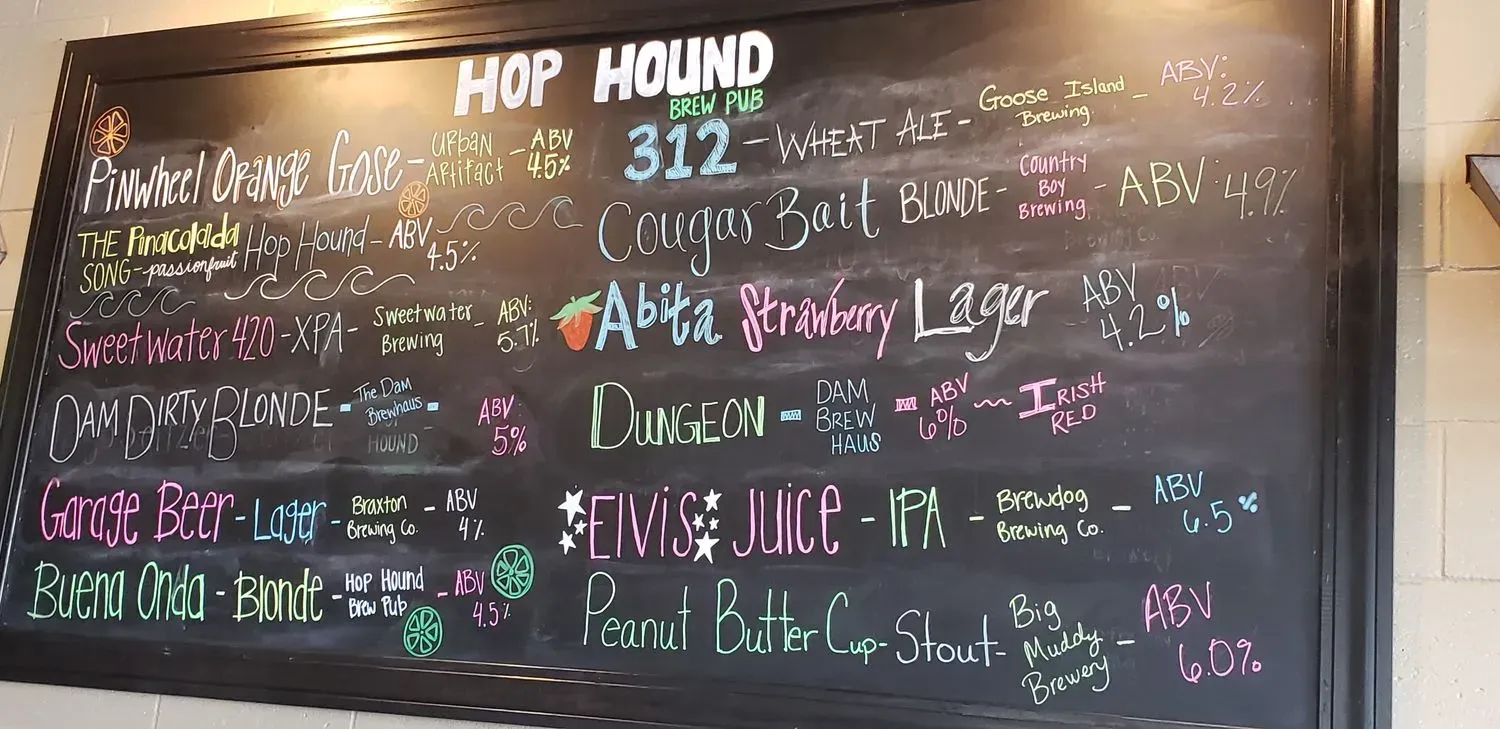 HOP HOUND
BREW PUB
PINWheel ORANge GOSe - URBAN ARTIFACT - ABV 4.5%
THE Pinacolada SONG - passionfruit Hop Hound - ABV 4.5%
Sweet Water 420 - XPA - Sweetwater Brewing - ABV: 5.7%
DAM DIRTY BLONDE - The Dam Brewhaus - ABV: 5%
HOUND
Garage Beer - Lager - Braxton Brewing Co. - ABV 4%
Buena Onda - Blonde - Hop Hound Brew Pub - ABV 4.5%
312 - WHEAT ALE - Goose Island Brewing - ABV: 4.2%
Cougar Bait BLONDE - Country Boy Brewing - ABV: 4.9%
Abita Strawberry Lager ABV 4.2%
DUNGEON - DAM BREW HAUS - ABV 6% ~ IRISH RED
ElViS JUiCE - IPA - Brewdog Brewing Co. - ABV 6.5%
Peanut Butter Cup - Stout - Big Muddy Brewery - ABV 6.0%